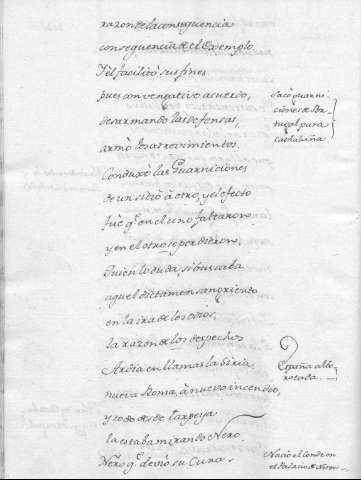 razon de la consequencia
consequencia de el Exemplo
Y èl facilitó sus fines
pues con vengativo acuerdo,
desarmando las defensas,
armó los atrevimientos.
Conduxò las Guarniciones
de un sitio à otro, y el efecto
fuè q.e en el uno faltaron
y en el otro se perdieron.
Quien lo duda, si buscaba
aquel dictamen sangriento
en la ira de los odios,
la razon de los despechos
Ardia en llamas la Siria,
nueva Roma, à nuevo incendio,
y todo desde tarpeya
la estaba mirando Nero.
Nero q.e deviò su Cuna
Sacò guarni-
ciones de Por-
tugal para
cathaluña
España albo-
rotada
Naciò el Conde en
el Palacio de Neron